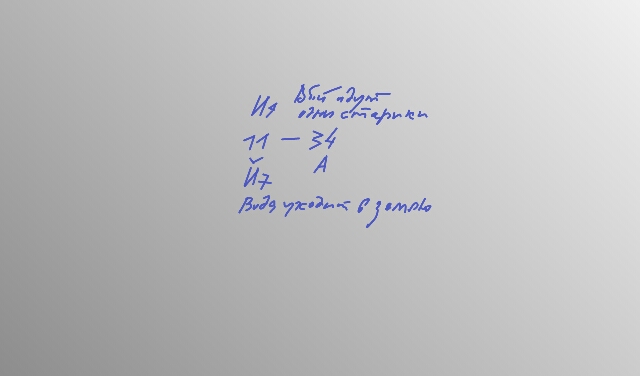 Ия
В бой идут
одни старики
11 - 34
Й7 А
Вода уходит в землю